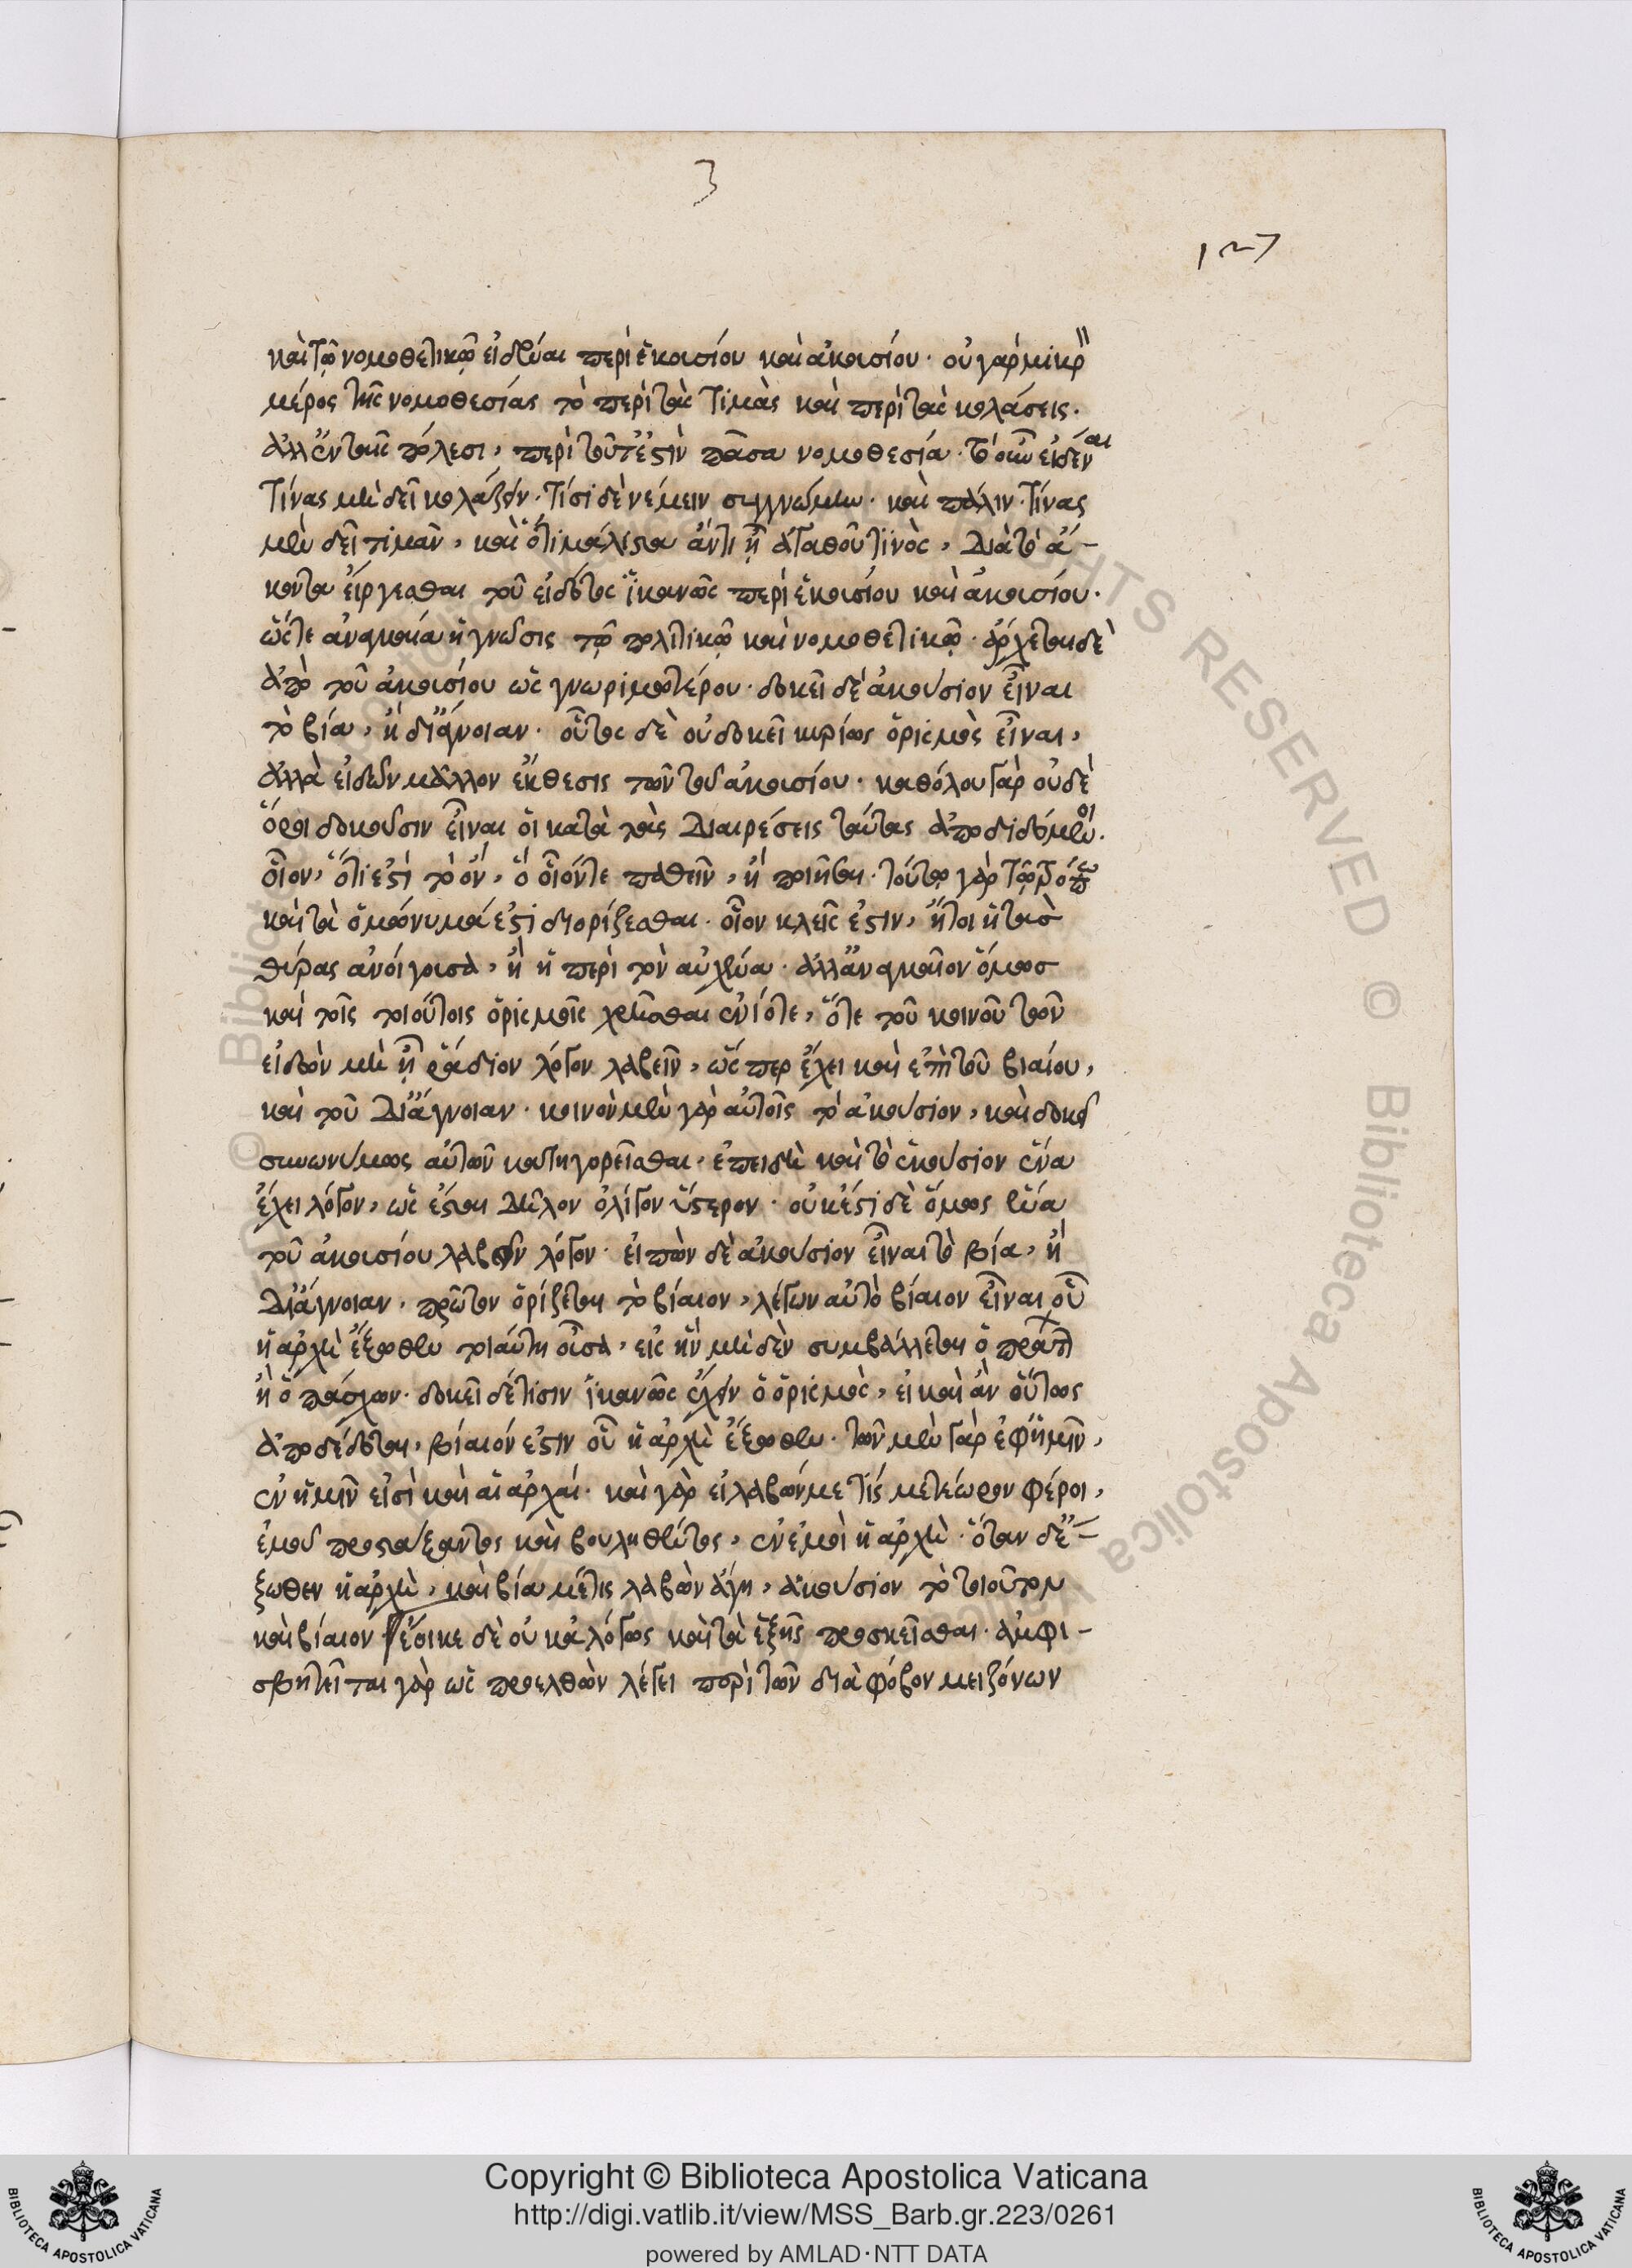 3
127
καὶ τῷ νομοθετικῷ εἰδέναι περὶ ἑκουσίου καὶ ἀκουσίου. οὐ γὰρ μικρὸν
μέρος τῆς νομοθεσίας τὸ περὶ τὰς τιμὰς καὶ περὶ τὰς κολάσεις.
ἀλλ' ἐν ταῖς πόλεσι, περὶ τοῦτ' ἐστὶν πᾶσα νομοθεσία. τὸ οὖν εἰδέναι
τίνας μὴ δεῖ κολάζειν. τίσι δὲ νέμειν συγγνώμην. καὶ πάλιν. τίνας
μὲν δεῖ τιμᾶν, καὶ ὅτι μάλιστα ἀντὶ ἢ ἀγαθοῦ τινὸς, διὰ τὸ ἄ-
κοντα εἴργεσθαι τοῦ εἰδότος ἱκανῶς περὶ ἑκουσίου καὶ ἀκουσίου.
ὥστε ἀναγκαία ἡ γνῶσις τῷ πολιτικῷ καὶ νομοθετικῷ. ἄρχεται δὲ
ἀπὸ τοῦ ἀκουσίου ὡς γνωριμωτέρου. δοκεῖ δὲ ἀκούσιον εἶναι
τὸ βίᾳ, ἢ δι' ἄγνοιαν. οὗτος δὲ οὐ δοκεῖ κυρίως ὁρισμὸς εἶναι,
ἀλλὰ εἰδῶν μᾶλλον ἔκθεσις τῶν τοῦ ἀκουσίου. καθόλου γὰρ οὐδὲ
ὅροι δοκοῦσιν εἶναι οἱ κατὰ τὰς διαιρέσεις ταύτας ἀποδιδόμενοι.
οἷον, ὅτι ἐστὶ τὸ ὄν, ὃ οἷόν τε παθεῖν, ἢ ποιῆσαι. τούτῳ γὰρ τῷ τρόπῳ
καὶ τὰ ὁμώνυμά ἐστι διορίζεσθαι. οἷον κλείς ἐστιν, ἤτοι ἡ τὰς
θύρας ἀνοίγουσα, ἢ ἡ περὶ τὸν αὐχένα. ἀλλ' ἀναγκαῖον ὅμως
καὶ τοῖς τοιούτοις ὁρισμοῖς χρῆσθαι ἐνίοτε, ὅτε τοῦ κοινοῦ τῶν
εἰδῶν μὴ ἢ ῥᾴδιον λόγον λαβεῖν, ὥσπερ ἔχει καὶ ἐπὶ τοῦ βιαίου,
καὶ τοῦ δι' ἄγνοιαν. κοινὸν μὲν γὰρ αὐτοῖς τὸ ἀκούσιον, καὶ δοκεῖ
συνωνύμως αὐτῶν κατηγορεῖσθαι. ἐπειδὴ καὶ τὸ ἑκούσιον ἕνα
ἔχει λόγον, ὡς ἔσται δῆλον ὀλίγον ὕστερον. οὐκ ἔστι δὲ ὅμως ἕνα
τοῦ ἀκουσίου λαβεῖν λόγον. εἰπὼν δὲ ἀκούσιον εἶναι τὸ βίᾳ, ἢ
δι' ἄγνοιαν, πρῶτον ὁρίζεται τὸ βίαιον, λέγων αὐτὸ βίαιον εἶναι οὗ
ἡ ἀρχὴ ἔξωθεν τοιαύτη οὖσα, εἰς ἣν μηδὲν συμβάλλεται ὁ πράττ
ἢ ὁ πάσχων. δοκεῖ δέ τισιν ἱκανῶς ἔχειν ὁ ὁρισμὸς, εἰ καὶ ἂν οὕτως
ἀποδέδοται, βίαιόν ἐστιν οὗ ἡ ἀρχὴ ἔξωθεν. τῶν μὲν γὰρ ἐφ' ἡμῖν,
ἐν ἡμῖν εἰσὶ καὶ αἱ ἀρχαί. καὶ γὰρ εἰ λαβών με τίς μετέωρον φέροι,
ἐμοῦ προστάξαντος καὶ βουληθέντος, ἐν ἐμοὶ ἡ ἀρχὴ. ὅταν δὲ ἔ-
ξωθεν ἡ ἀρχὴ, καὶ βίᾳ μέ τις λαβὼν ἄγῃ, ἀκούσιον τὸ τοιοῦτον
καὶ βίαιον ἔοικε δὲ οὐκ ἀλόγως καὶ τὰ ἑξῆς προσκεῖσθαι. ἀμφι-
σβητεῖται γὰρ ὡς προελθὼν λέγει περὶ τῶν διὰ φόβον μειζόνων
Copyright © Biblioteca Apostolica Vaticana
http://digi.vatlib.it/view/MSS_Barb.gr.223/0261
powered by AMLAD·NTT DATA